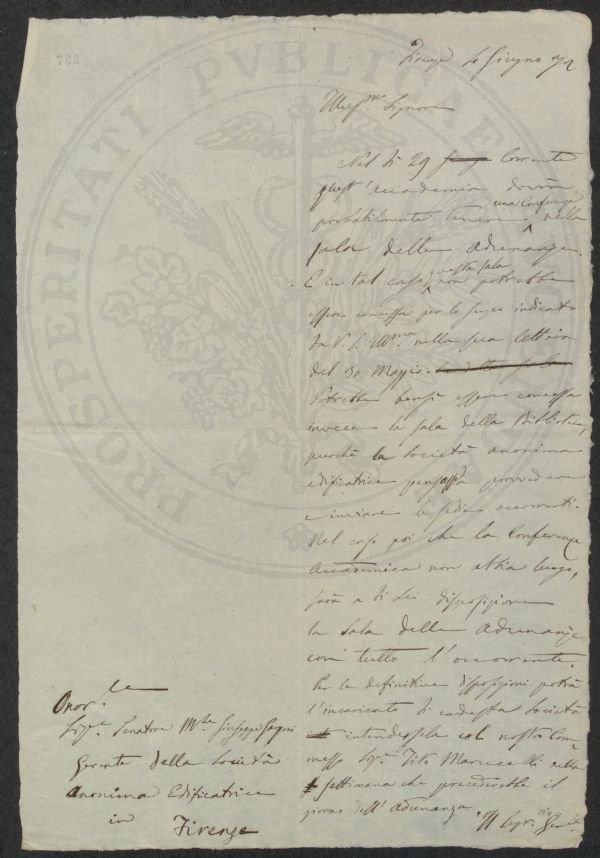 768
PROSPERITATI PVBLICAE
Firenze 4 Giugno
Illus.mo Signore
Nel dì 29 Corrente
quest'accademia dovrà
probabilmente tenere una Conferenza nella
sala delle adunanze.
E in tal caso questa sala non potrebbe
essere concessa per lo scopo indicato
da V. S. Ill.ma nella sua lettera
del 30 Maggio.
Potrebbe bensì essere concessa
invece la sala della Biblioteca,
purchè la Società anonima
edificatrice pensasse provvedere
e inviare le sedie occorrenti.
Nel caso poi che la Conferenza
Accademica non abbia luogo,
sarà a di Lei disposizione
la Sala delle Adunanze
con tutto l'occorrente.
Per le definitive disposizioni potrà
l'incaricato di codesta Società
intendersela col nostro Com-
messo Sig.r Tito Marucelli nella
settimana che precederebbe il
giorno dell'Adunanza.
Il Segr.rio
Onor.le
Sig.r Senatore M.se Giuseppe
Gerente della Società
Anonima Edificatrice
in
Firenze